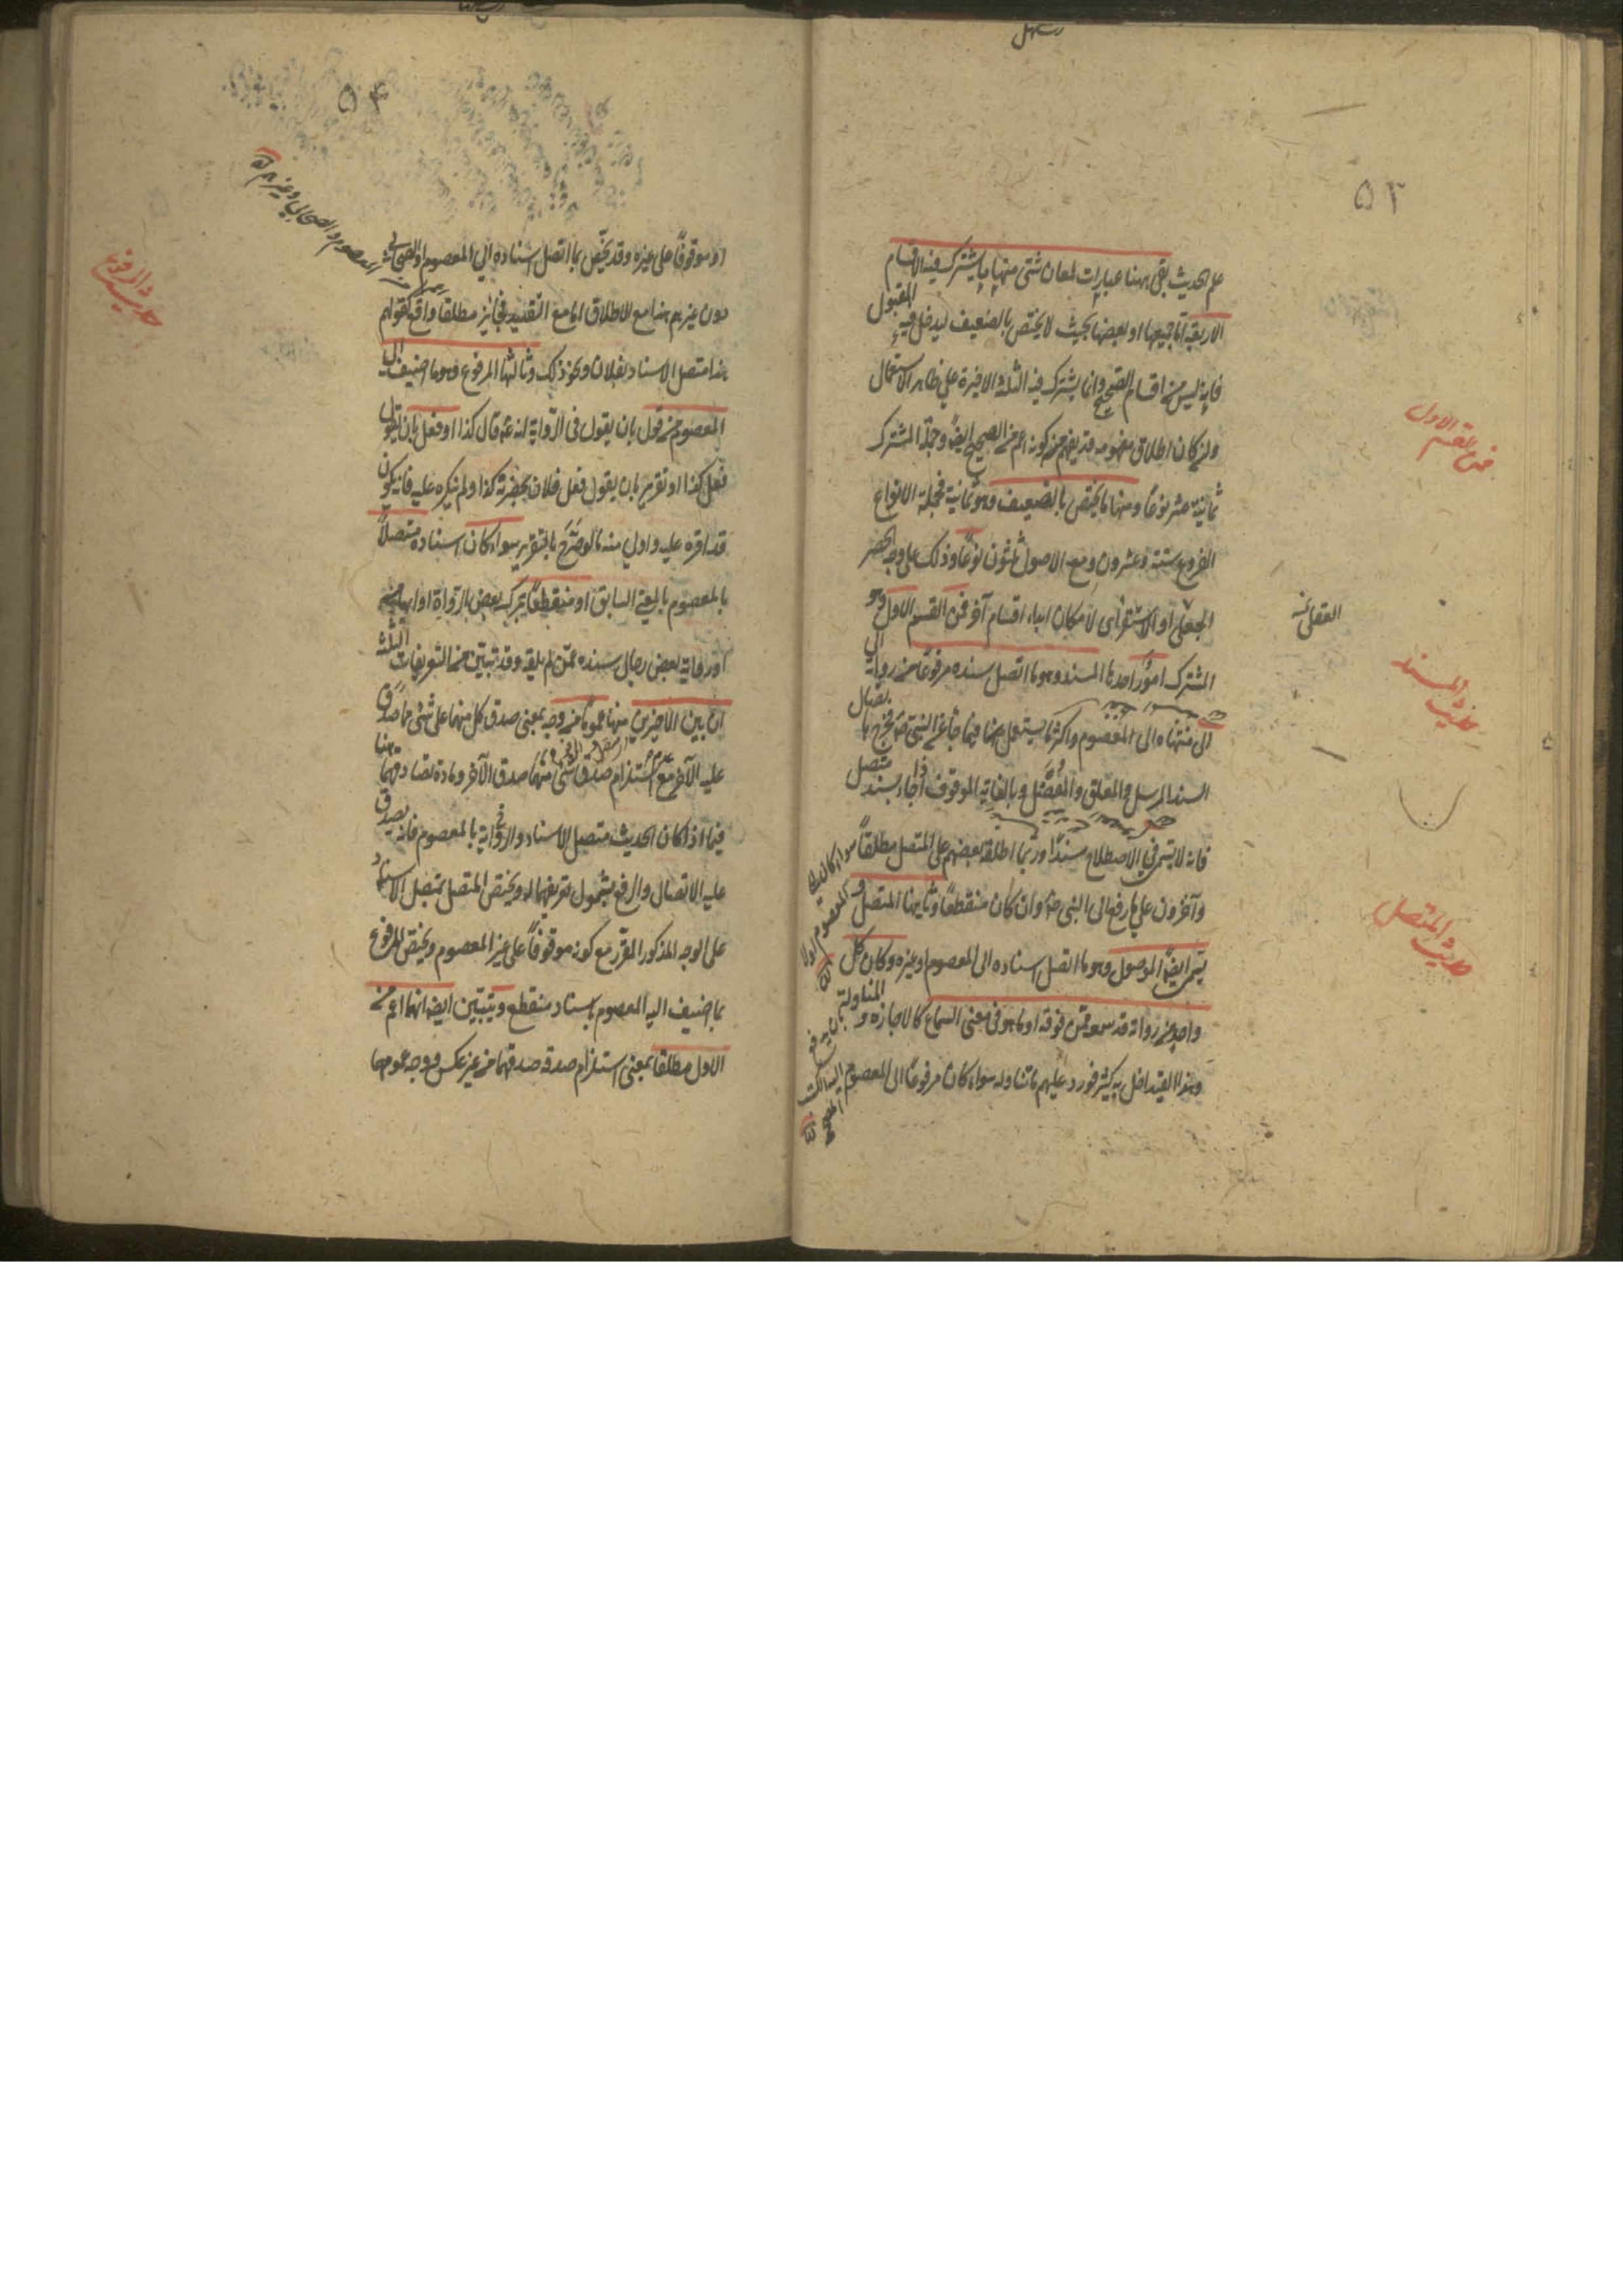 ٥٣
علم الحديث بقى هنا عبارات لمعان شتى منها ما يشترك فيه الاقسام
الاربعة اما جميعها او بعضها بحيث لا يختص بالضعيف ليدخل فيه المقبول
فانه ليس من اقسام الصحيح وانما يشترك فيه الثلثة الاخيرة على ظاهر الاستعمال
وان كان اطلاق مفهومه قد يفهم منه كونه اعم من الصحيح ايضا وجملة المشترك
ثمانية عشر نوعا ومنها ما يختص بالضعيف وهو ثمانية فجملة الانواع
الفروع ستة وعشرون ومع الاصول ثلثون نوعا وذلك على وجه الحصر
الجعلي او الاستقرائي لامكان ابداء اقسام آخر فمن القسم الاول وهو
المشترك امور احدها المسند وهو ما اتصل سنده مرفوعا من راويه الى
الى منتهاه الى المعصوم واكثر ما يستعمل فيما جاء عن النبي ص فخرج باتصال
السند المرسل والمعلق والمعضل وبالغاية الموقوف اذا جاء بسند متصل
فانه لا يسمى في الاصطلاح مسندا وربما اطلقه بعضهم على المتصل مطلقا
وآخرون على ما رفع الى النبي ص وان كان منقطعا وثانيها المتصل و
يسمى ايضا الموصول وهو ما اتصل اسناده الى المعصوم او غيره وكان كل
واحد من رواته قد سمعه ممن فوقه او ما هو في معنى السماع كالاجازة و المناولة
وهذا القيد اخل به كثير فورد عليهم ما تناوله سواء كان مرفوعا الى المعصوم
فمن القسم الاول
حديث المسند
حديث المتصل
٥٤
او موقوفا على غيره وقد يخص بما اتصل اسناده الى المعصوم او الصحابي
دون غيرهم هذا مع الاطلاق اما مع التقييد فجائز مطلقا واقع كقولهم
هذا متصل الاسناد بفلان ونحو ذلك وثالثها المرفوع وهو ما اضيف الى
المعصوم من قول بان يقول في الرواية انه ع قال كذا او فعل بان يقول
فعل كذا او تقرير بان يقول فعل فلان بحضرته كذا ولم ينكره عليه فانه يكون
قد اقره عليه واولى منه ما لو صرح بالتقرير سواء كان اسناده متصلا
بالمعصوم بالمعنى السابق او منقطعا بترك بعض الرواة او ابهامه
او رواية بعض رجال سنده عمن لم يلقه وقد تبين من التعريفات الثلثة
ان بين الاخيرين منها عموما من وجه بمعنى صدق كل منهما على شئ مما صدق
عليه الآخر مع عدم استلزام صدق شئ منهما صدق الآخر ومادة تصادقهما هنا
فيما اذا كان الحديث متصل الاسناد والرواية بالمعصوم فانه يصدق
عليه الاتصال والرفع بشمول تعريفهما له ويختص المتصل بمتصل الاسناد
على الوجه المذكور المقرر مع كونه موقوفا على غير المعصوم ويختص المرفوع
بما اضيف الى المعصوم باسناد منقطع وتبين ايضا انهما اعم من
الاول مطلقا بمعنى استلزام صدقه صدقهما من غير عكس ووجه عمومهما
حديث المرفوع